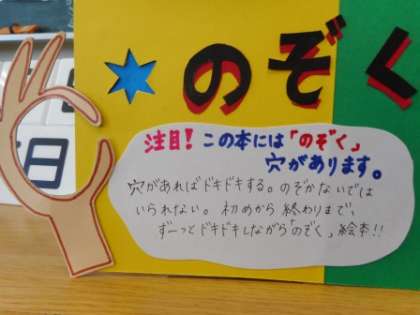 のぞく
日
注目！この本には「のぞく」
穴があります。
穴があればドキドキする。のぞかないでは
いられない。初めから終わりまで、
ずーっとドキドキしながら「のぞく」絵本!!